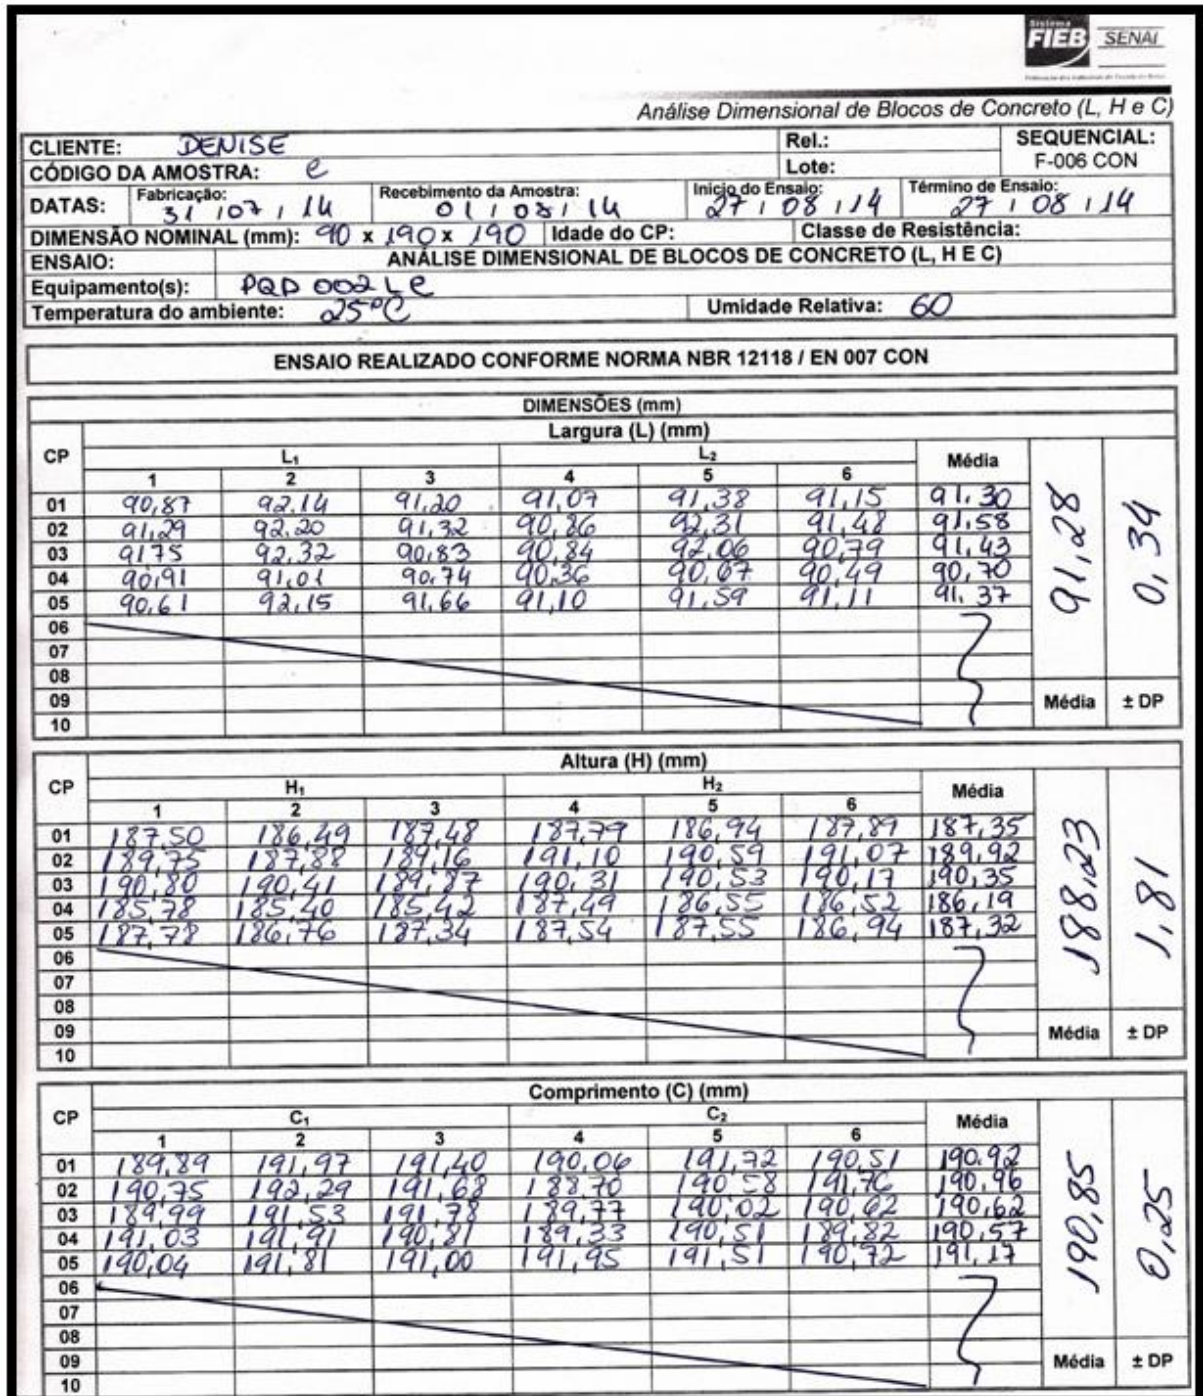 Sistema
FIEB SENAI
Análise Dimensional de Blocos de Concreto (L, H e C)
CLIENTE: DENISE Rel.: SEQUENCIAL:
CÓDIGO DA AMOSTRA: e Lote: F-006 CON
DATAS: Fabricação: 31 / 07 / 14 Recebimento da Amostra: 01 / 08 / 14 Inicio do Ensaio: 27 / 08 / 14 Término de Ensaio: 27 / 08 / 14
DIMENSÃO NOMINAL (mm): 90 x 190 x 190 Idade do CP: Classe de Resistência:
ENSAIO: ANÁLISE DIMENSIONAL DE BLOCOS DE CONCRETO (L, H E C)
Equipamento(s): PQD 002 L e
Temperatura do ambiente: 25°C Umidade Relativa: 60
ENSAIO REALIZADO CONFORME NORMA NBR 12118 / EN 007 CON
DIMENSÕES (mm)
Largura (L) (mm)
CP L₁ L₂ Média
1 2 3 4 5 6
01 90,87 92,14 91,20 91,07 91,38 91,15 91,30
02 91,29 92,20 91,32 90,86 92,31 91,48 91,58
03 91,75 92,32 90,83 90,84 92,06 90,79 91,43
04 90,91 91,01 90,74 90,36 90,67 90,49 90,70
05 90,61 92,15 91,66 91,10 91,59 91,11 91,37
91,28 0,34
06
07
08
09 Média ± DP
10
Altura (H) (mm)
CP H₁ H₂ Média
1 2 3 4 5 6
01 187,50 186,49 187,48 187,79 186,94 187,89 187,35
02 189,75 187,88 189,16 191,10 190,59 191,07 189,92
03 190,80 190,41 189,87 190,31 190,53 190,17 190,35
04 185,78 185,40 185,42 187,49 186,55 186,52 186,19
05 187,78 186,76 187,34 187,54 187,55 186,94 187,32
188,23 1,81
06
07
08
09 Média ± DP
10
Comprimento (C) (mm)
CP C₁ C₂ Média
1 2 3 4 5 6
01 189,89 191,97 191,40 190,06 191,72 190,51 190,92
02 190,75 192,29 191,68 188,70 190,58 191,76 190,96
03 189,99 191,53 191,78 189,77 190,02 190,62 190,62
04 191,03 191,91 190,81 189,33 190,51 189,82 190,57
05 190,04 191,81 191,00 191,95 191,51 190,72 191,17
190,85 0,25
06
07
08
09 Média ± DP
10